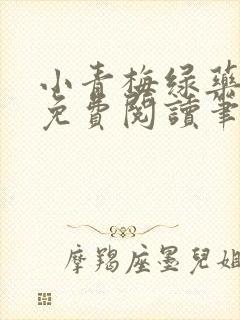 小青梅绿药
免費閱讀筆
摩羯座墨兒姐